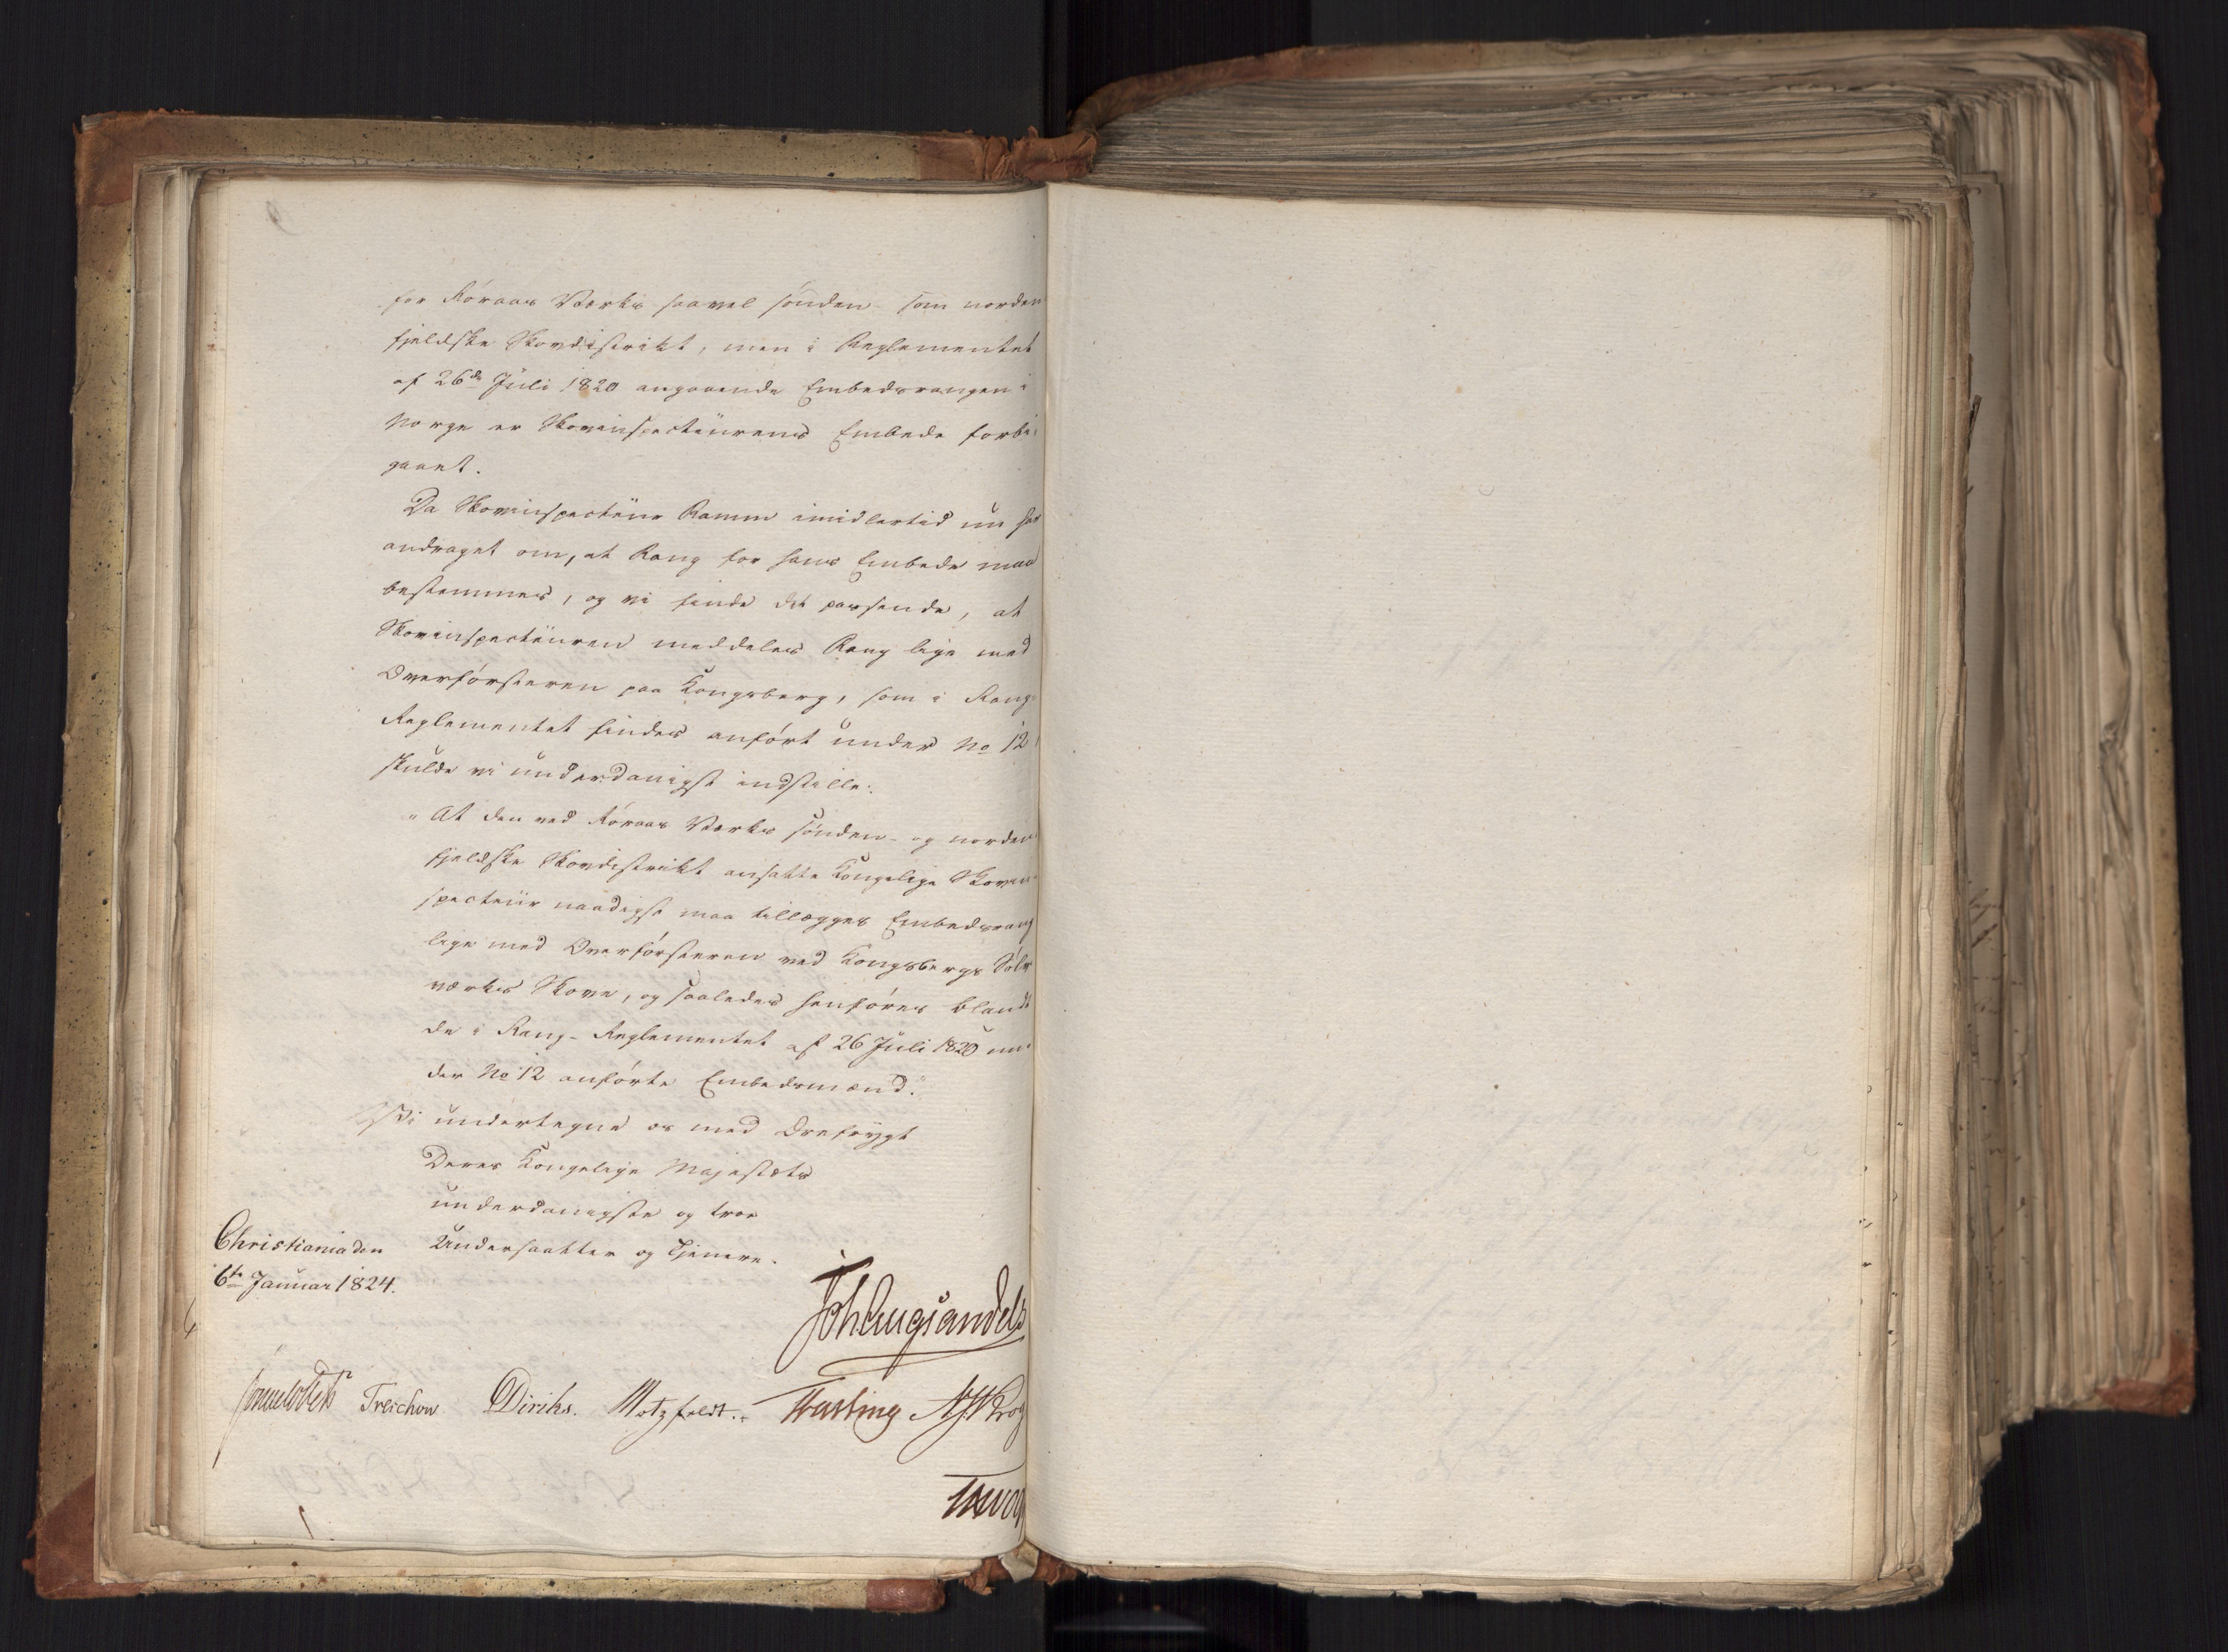 for Röraas Værks saavel sönden- som norden
fjeldske Skovdistrikt, men i Reglementet
af 26de Juli 1820 angaaende Embedsrangen i
Norge er Skovinspecteurens Embede forbi
gaaet.
Da Skovinspecteur Ramm imidlertid nu har
andraget om, at Rang for hans Embede maa
bestemmes, og vi finde det passende, at
Skovinspecteuren meddeles Rang lige med
Overförsteren paa Kongsberg, som i Rang-
Reglementet findes anfört under No 12
skulde vi underdanigst indstille:
"At den ved Röraas Værks sönden- og norden
fjeldske Skovdistrikt ansatte Kongelige Skovin
specteur naadigst maa tillægges Embedsrang
lige med Overförsteren ved Kongsbergs Sölv
værks Skove, og saaledes henföres blandt
de i Rang-Reglementet af 26 Juli 1820 un
der No 12 anförte Embedsmænd."
Vi undertegne os med Ærefrygt
Deres Kongelige Majestæts
underdanigste og troe
Undersaatter og Tjenere.
Christiania den
6te Januar 1824.
Joh Aug Sandels
Sommerhielm Treschow. Diriks. Motzfeldt. Fasting Krog